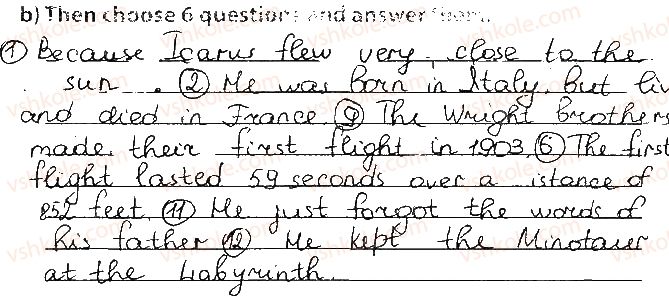 b) Then choose 6 questions and answer them.
① Because Icarus flew very close to the
sun. ② He was born in Italy, but liv
and died in France. ⑨ The Wright brothers
made their first flight in 1903. ⑥ The first
flight lasted 59 seconds over a istance of
852 feet. ⑪ He just forgot the words of
his father ⑫ He kept the Minotaur
at the Labyrinth.